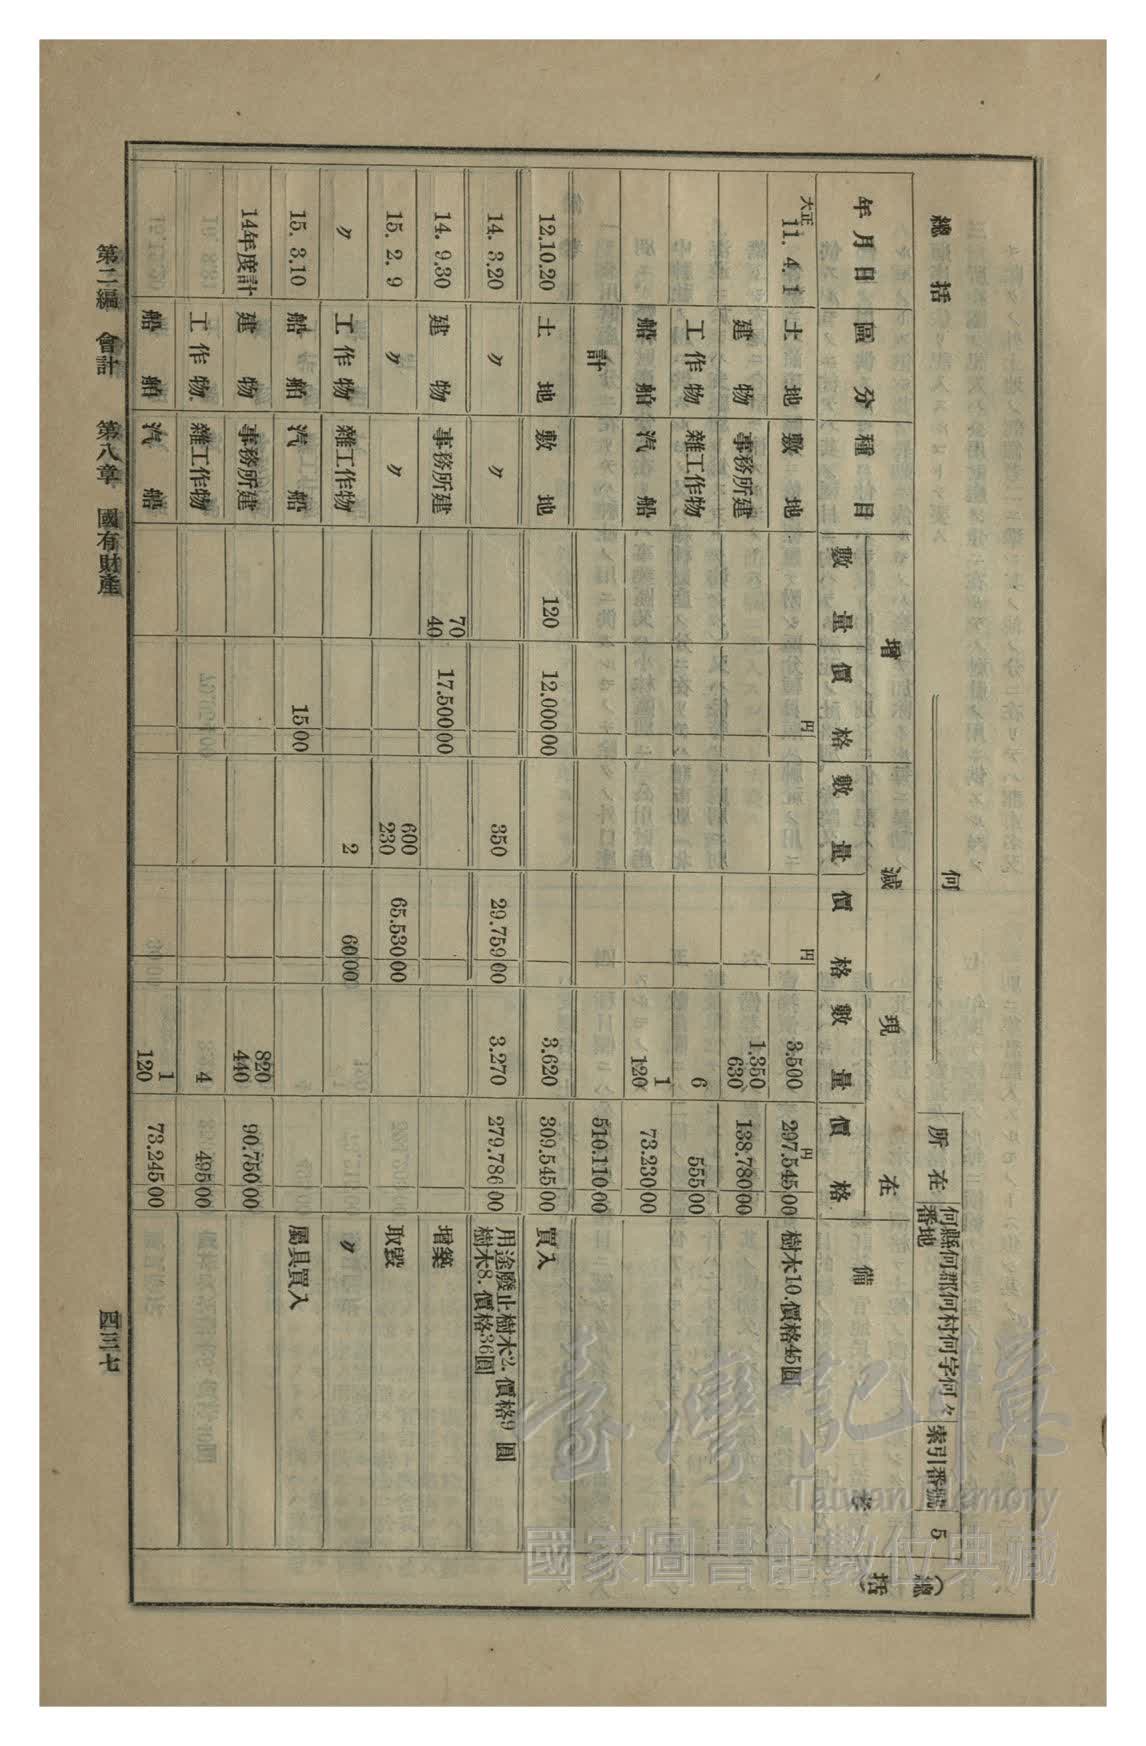 總括
何
所在 何縣何郡何村何字何々番地 索引番號 5
(總括)
年月日 區分 種目 增 減 現在 備考
數量 價格 數量 價格 數量 價格
大正11. 4. 1 土地 敷地 円 円 3.500 297.545 00円 樹木10.價格45圓
建物 事務所建 1.350 630 138.780 00
工作物 雜工作物 6 555 00
船舶 汽船 1 120 73.230 00
計 510.110 00
12.10.20 土地 敷地 120 12.000 00 3.620 309.545 00 買入
14. 3.20 〃 〃 350 29.759 00 3.270 279.786 00 用途廢止樹木2.價格9圓
樹木8.價格36圓
14. 9.30 建物 事務所建 70 40 17.500 00 增築
15. 2. 9 〃 〃 600 230 65.530 00 取毀
〃 工作物 雜工作物 2 60 00 〃
15. 3.10 船舶 汽船 15 00 屬具買入
14年度計 建物 事務所建 820 440 90.750 00
工作物 雜工作物 4 495 00
船舶 汽船 1 120 73.245 00
第二編 會計 第八章 國有財產 四三七
臺灣記憶
Taiwan Memory
國家圖書館數位典藏